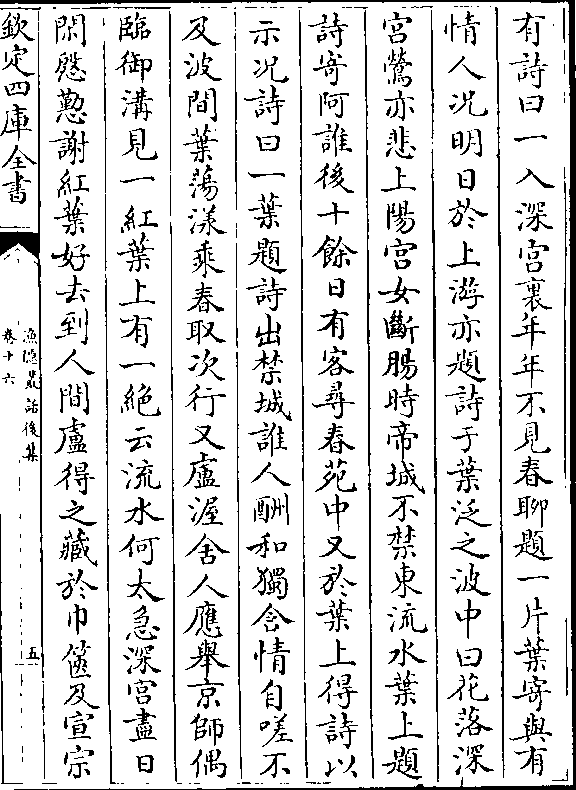 有詩曰一入深宫裏年年不見春聊題一片葉寄與有
情人况明日於上游亦題詩于葉泛之波中曰花落深
宫鶯亦悲上陽宫女斷腸時帝城不禁東流水葉上題
詩寄阿誰後十餘日有客尋春苑中又於葉上得詩以
示况詩曰一葉題詩出禁城誰人酬和獨含情自嗟不
及波間葉蕩漾乘春取次行又盧渥舍人應舉京師偶
臨御溝見一紅葉上有一絶云流水何太急深宫盡日
閑慇懃謝紅葉好去到人間盧得之藏於巾篋及宣宗
欽定四庫全書
漁隱叢話後集
卷十六
五